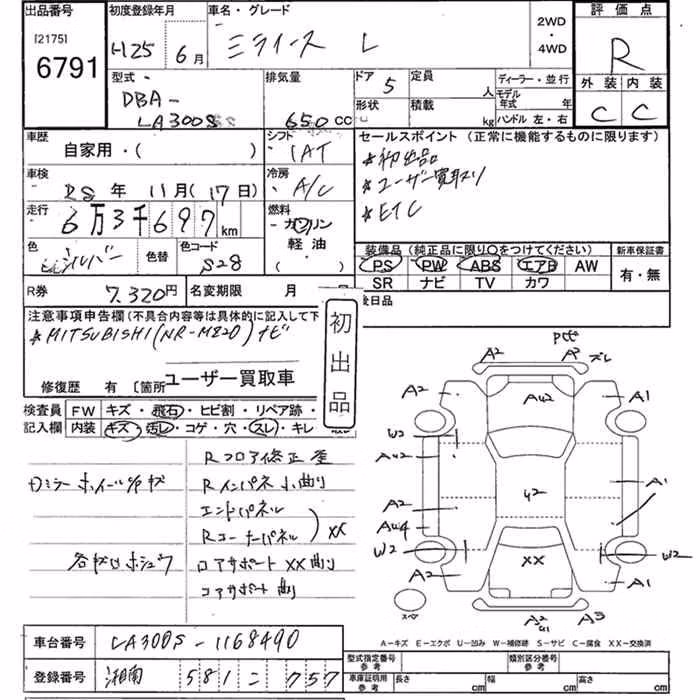 出品番号 初度登録年月 車名・グレード 2WD 評価点
[2175] 6791 H25 6月 ミライース L ・ 4WD R
型式 排気量 ドア 5 定員 人 ディーラー・並行 外装 内装
DBA- LA300S 650cc 形状 積載 kg モデル年式 年 ハンドル 左・右 C C
車歴 シフト セールスポイント (正常に機能するものに限ります)
自家用・( ) IAT *初出品
車検 冷房 *ユーザー買取り
R8年 11月(17日) A/C *ETC
走行 6万3千697km 燃料 ガソリン
軽油
( )
色 シルバー 色替 色コード S28
装備品 (純正品に限り○をつけてください) 新車保証書
PS PW ABS エアB AW 有・無
SR ナビ TV カワ
R券 7.320円 名変期限 月 後日品
注意事項申告欄(不具合内容等は具体的に記入して下
*MITSUBISHI(NR-MZ20)ナビ
初出品
修復歴 有 〔箇所 ユーザー買取車
検査員 FW キズ・飛石・ヒビ割・リペア跡・
記入欄 内装 キズ・汚レ・コゲ・穴・スレ・キレ
Rフロア修正歪
Dミラー ホイールキャップキズ Rインパネ小曲り
エンドパネル
Rコーナーパネル XX
各ボルトホシュウ ロアサポート XX曲り
コアサポート曲
A2 A2 ズレ
A2 AU2 A1
W2
AU2
A2 U2 A1
AU4
W2 XX W2
A2 A1
スペア A2 A3
A-キズ E-エクボ U-凹み W-補修跡 S-サビ C-腐食 XX-交換済
車台番号 LA300S-1168490
登録番号 湘南 581 こ 757
型式指定番号 参考 類別区分番号 参考
車庫証明用 参考 長さ cm 幅 cm 高さ cm